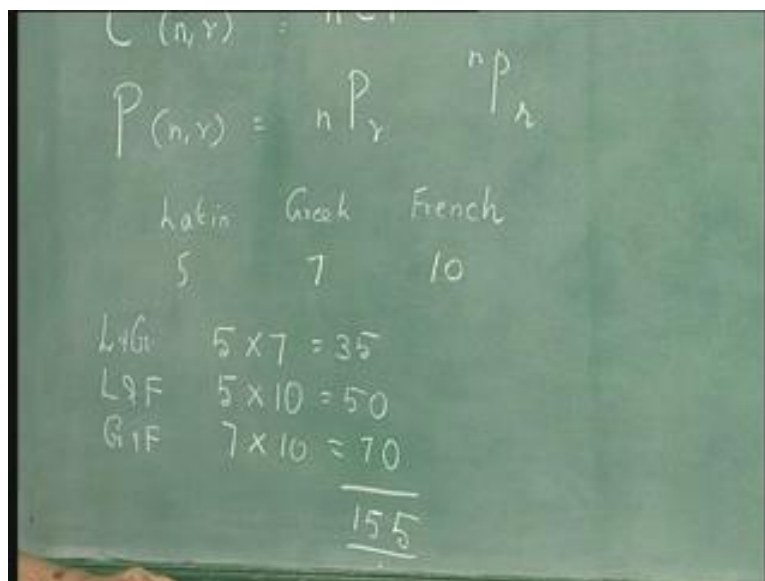 C (n, r) = nCr
P (n, r) = nPr nPr
Latin Greek French
5 7 10
L&G 5 × 7 = 35
L&F 5 × 10 = 50
G&F 7 × 10 = 70
155